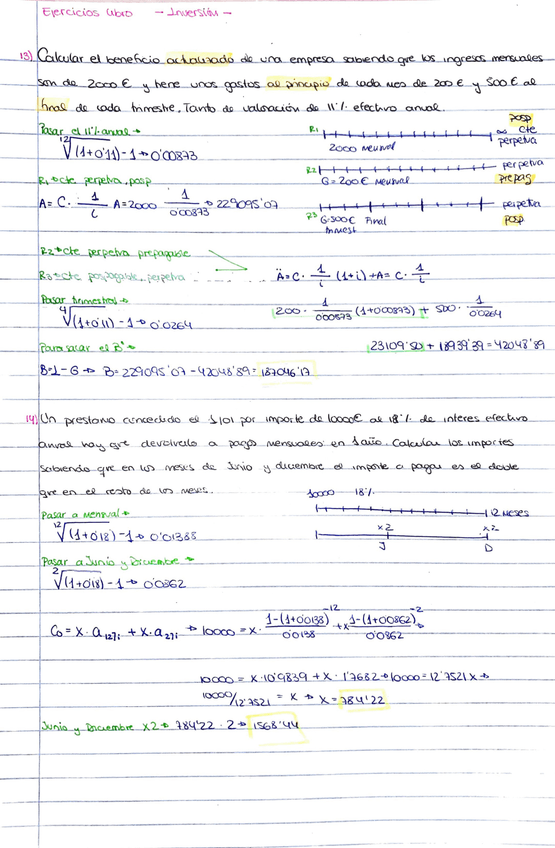 Ejercicios libro → Inversión -
13) Calcular el beneficio actualizado de una empresa sabiendo que los ingresos mensuales
son de 2000 € y tiene unos gastos al principio de cada mes de 200 € y 500 € al
final de cada trimestre. Tanto de valoración de 11% efectivo anual.
Pasar el 11% anual →
¹²√(1+0'11) - 1 → 0'00873
R1 ∞ cte perpetua posp
2000 mensual
R2 perpetua prepag
G = 200€ mensual
R3 perpetua posp
G·500€ Final trimest
R1 → cte perpetua, posp
A = C · 1/i A = 2000 1/0'00873 → 229095'07
R2 → cte perpetua prepagable
R3 → cte pospagable, perpetua
Ä = C · 1/i (1+i) + A = C · 1/i
Pasar trimestral →
⁴√(1+0'11) - 1 → 0'0264
200 · 1/0'00873 (1+0'00873) + 500 · 1/0'0264
23109'50 + 18939'39 = 42048'89
Para sacar el Bº →
B = I - G → B = 229095'07 - 42048'89 = 187046'17
14) Un prestamo concedido el 1/01 por importe de 10000€ al 18% de interes efectivo
anual hay que devolverlo a pagos mensuales en 1 año. Calcular los importes
sabiendo que en los meses de Junio y diciembre el importe a pagar es el doble
que en el resto de los meses.
10000 18%
12 meses
x2 x2
J D
Pasar a Mensual →
¹²√(1+0'18) - 1 → 0'01388
Pasar a Junio y Diciembre →
²√(1+0'18) - 1 → 0'0862
C₀ = X · a₁₂¬ᵢ + X · a₂¬ᵢ → 10000 = X · 1-(1+0'0138)⁻¹²/0'0138 + X 1-(1+0'0862)⁻²/0'0862 →
10000 = X · 10'9839 + X · 1'7682 → 10000 = 12'7521 X →
10000/12'7521 = X → X = 784'22
Junio y Diciembre x2 → 784'22 · 2 → 1568'44